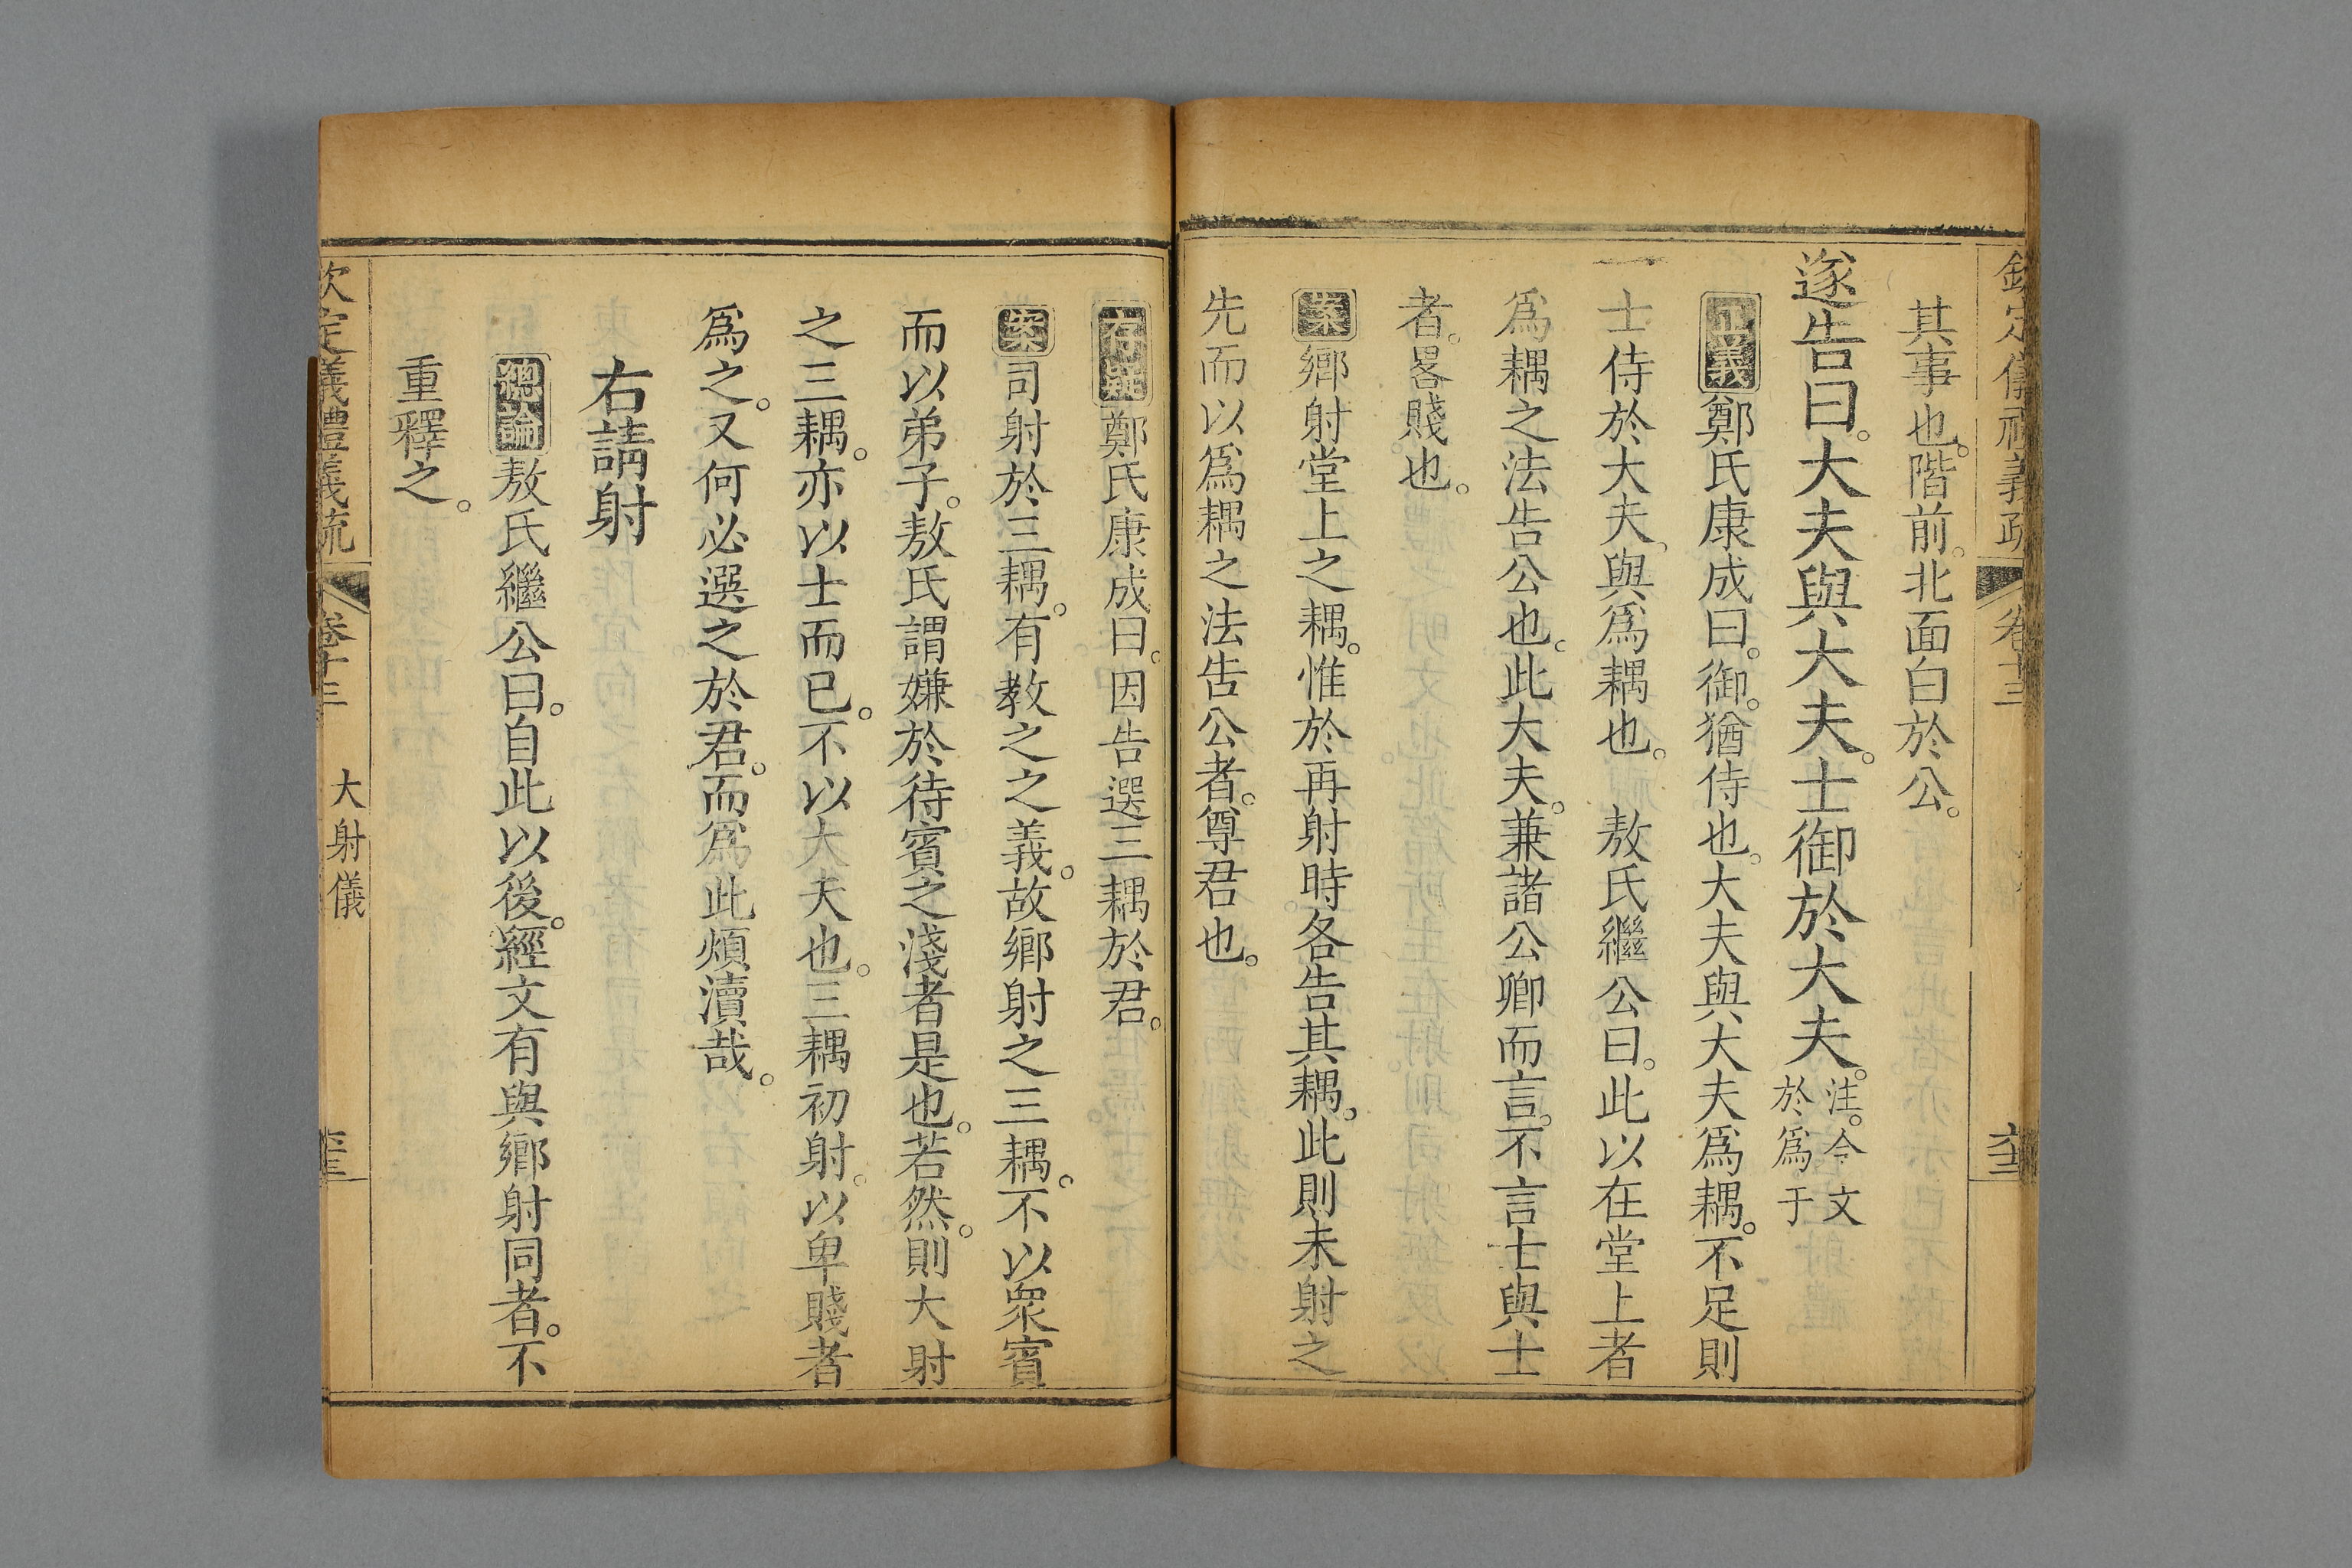 欽定儀禮義疏 卷十三
其事也。階前。北面白於公。
遂告曰。大夫與大夫。士御於大夫。注。今文於爲于
正義鄭氏康成曰。御。猶侍也。大夫與大夫爲耦。不足則
士侍於大夫、與爲耦也。 敖氏繼公曰。此以在堂上者
爲耦之法告公也。此大夫。兼諸公卿而言。不言士與士
者。畧賤也。
案鄉射堂上之耦。惟於再射時各告其耦。此則未射之
先而以爲耦之法告公者。尊君也。
存疑鄭氏康成曰。因告選三耦於君。
案司射於三耦。有教之之義。故鄉射之三耦。不以衆賓
而以弟子。敖氏謂嫌於待賓之淺者是也。若然。則大射
之三耦。亦以士而已。不以大夫也。三耦初射。以卑賤者
爲之。又何必選之於君。而爲此煩瀆哉。
右請射
總論敖氏繼公曰。自此以後。經文有與鄉射同者。不
重釋之。
欽定儀禮義疏 卷十三 大射儀